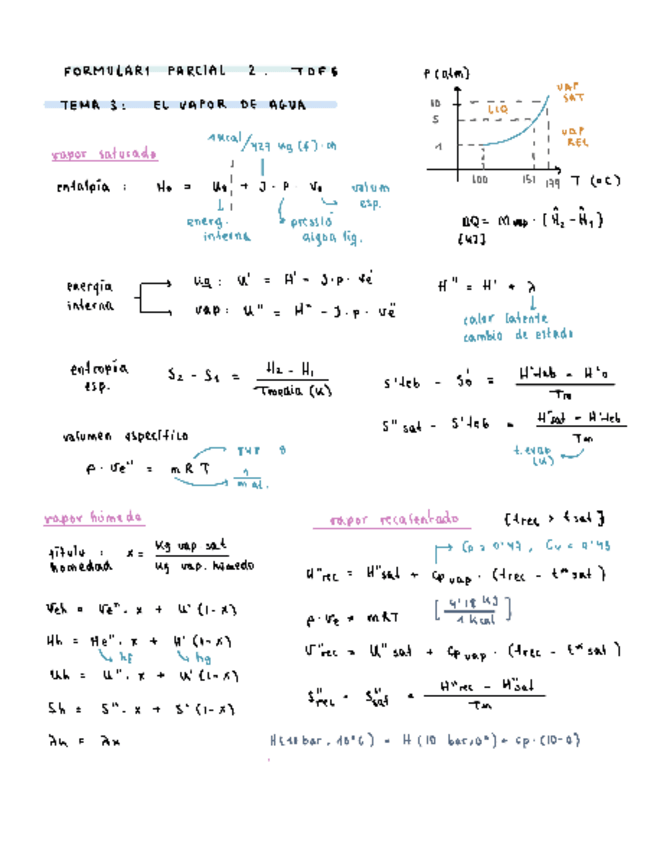 FORMULARI PARCIAL 2. TDFS
TEMA 3: EL VAPOR DE AGUA
P (atm)
10
5
1
LIQ
VAP SAT
VAP REL
100 151 179 T (°C)
vapor saturado
1 Kcal/427 Kg (f)·m
entalpía : He = Ue + J · P · Ve
volum esp.
energ. interna
pressió
ΔQ = Mvap · (Ĥ2 - Ĥ1)
[KJ]
energía interna
liq : U' = H' - J·p·Ve'
vap : U" = H" - J·p·Ve"
H" = H' + λ
calor latente
cambio de estado
entropía esp. S2 - S1 = H2 - H1 / Tmedia (K)
S'teb - S'0 = H'teb - H'0 / Tm
S"sat - S'teb = H"sat - H'teb / Tm
t. evap (K)
volumen específico
P · Ve" = m R T
vapor húmedo
título : x = Kg vap sat / Kg vap. húmedo
homedad
Veh = Ve" · x + U' (1-x)
Hh = He" · x + H' (1-x)
hf hg
Uh = U" · x + U' (1-x)
Sh = S" · x + S' (1-x)
λh = λx
vapor recalentado [trec > tsat]
Cp = 0'47, Cv = 0'43
H"rec = H"sat + Cp vap · (trec - t*sat)
p · Ve = mRT [4'18 KJ / 1 Kcal]
U"rec = U"sat + Cp vap · (trec - t*sat)
S"rec - S"sat = H"rec - H"sat / Tm
H(10 bar, 10°C) = H (10 bar, 0°) + Cp · (10-0)